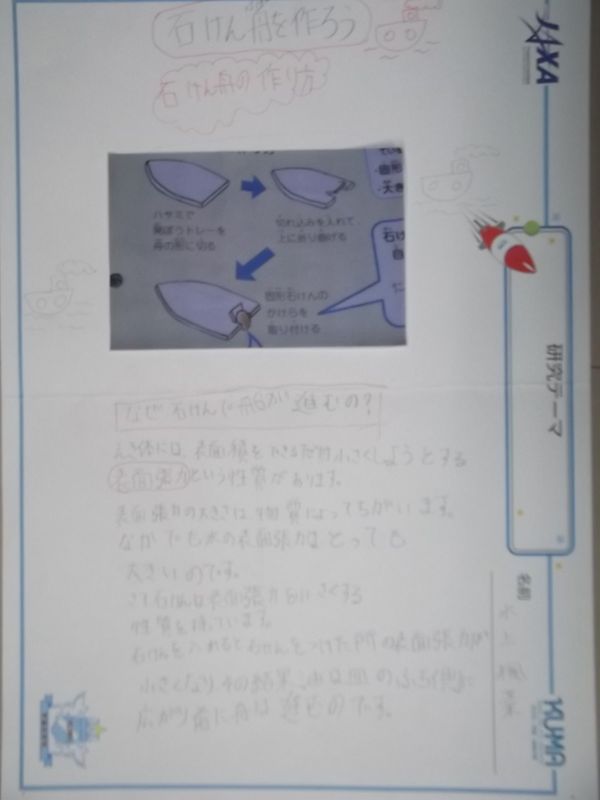 石けん舟を作ろう
石けん舟の作り方
ハサミで
発ぽうトレーを
舟の形に切る
切れ込みを入れて、
上に折り曲げる
固形石けんの
かけらを
取り付ける
なぜ石けんで船が進むの?
えき体には、表面積をできるだけ小さくしようとする
表面張力という性質があります。
表面張力の大きさは物質によってちがいます。
なかでも水の表面張力はとっても
大きいのです。
石けんは表面張力を小さくする
性質を持っています。
石けんを入れると石けんをつけた所の表面張力が
小さくなり、その結果、水は皿のふち側に
広がり前に舟は進むのです。
JAXA
研究テーマ
名前
水上
KUMA